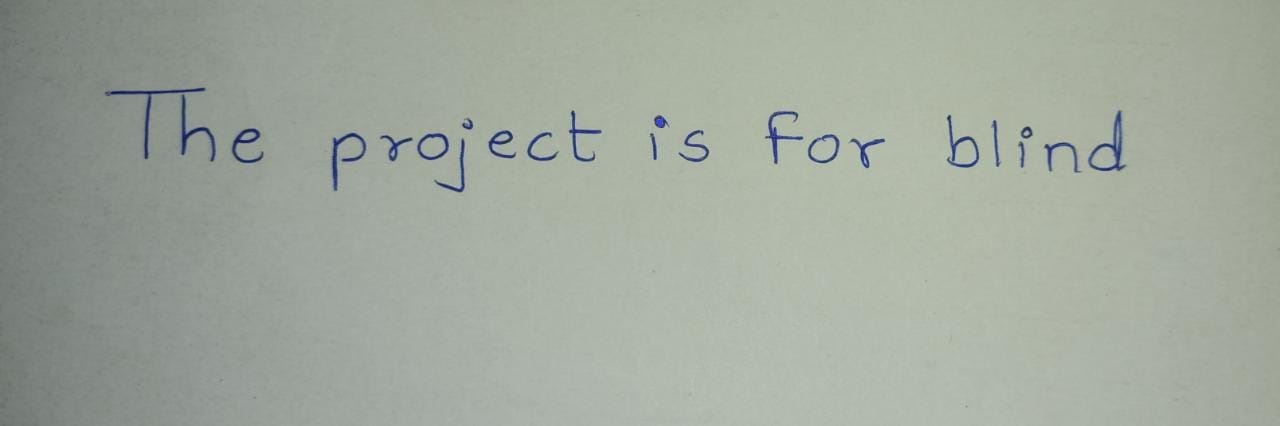 The project is for blind